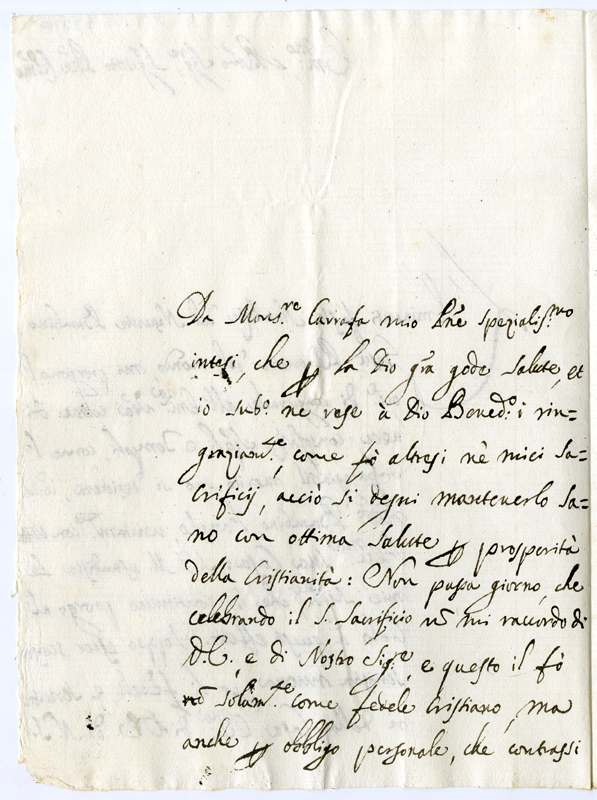 Da Mons.re Carrafa mio Pñe spezialis.mo
intesi, che p la Dio gr̃a gode salute, et
io sub.o ne rese à Dio Bened.o i rin=
graziam.ti, come fò altresi nè miei Sa=
crificij, acciò si degni mantenerlo sa=
no con ottima salute p prosperità
della Cristianità: Non passa giorno, che
celebrando il S. Sacrificio nõ mi raccordo di
V.E., e di Nostro Sig.re, e questo il fò
nõ solam.te come fedele Cristiano, ma
anche p obbligo personale, che contrassi